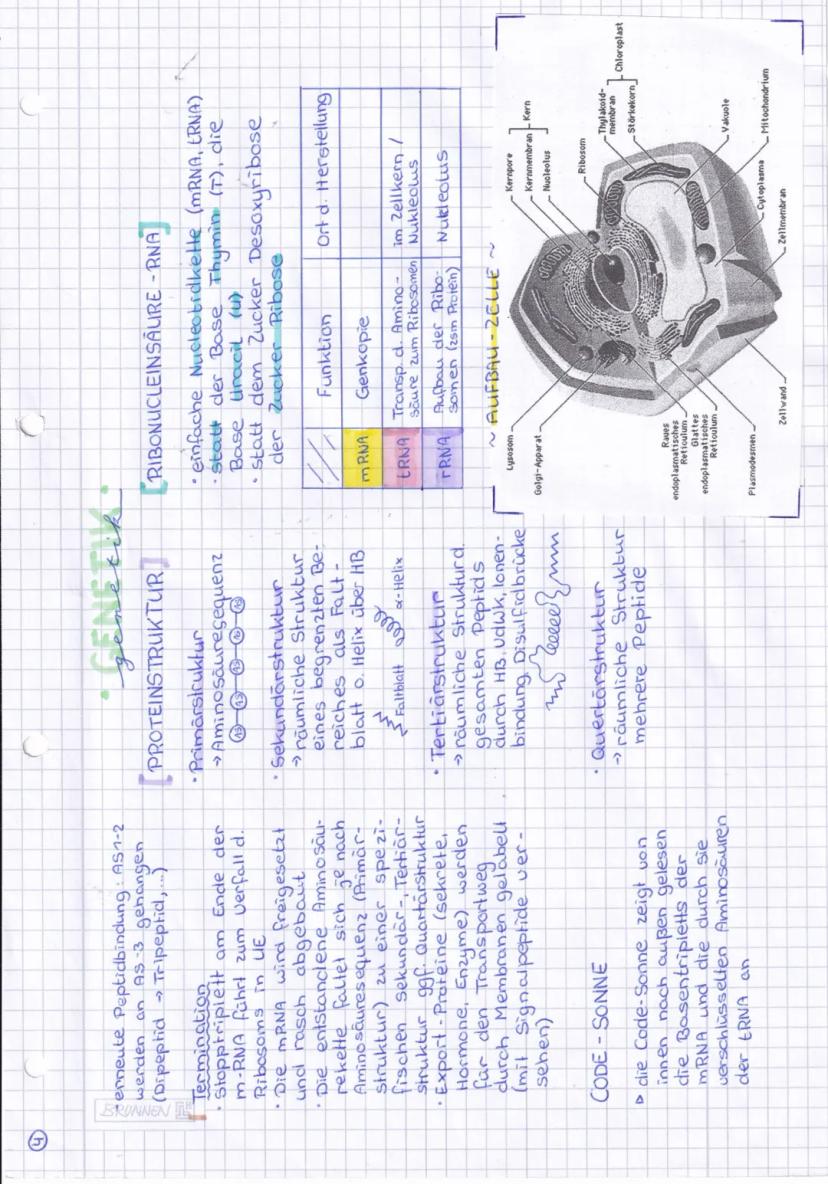 ④
• GENETIK •
genetik
• erneute Peptidbindung: AS1-2
werden an AS-3 gehangen
(Dipeptid → Tripeptid,...)
BRUNNEN
Termination
• Stopptriplett am Ende der
m-RNA führt zum Verfall d.
Ribosoms in UE
• Die mRNA wird freigesetzt
und rasch abgebaut
• Die entstandene Aminosäu-
rekette faltet sich je nach
Aminosäuresequenz (Primär-
struktur) zu einer spezi-
fischen sekundär-, Tertiär-
struktur ggf. Quartärstruktur
• Export-Proteine (sekrete,
Hormone, Enzyme) werden
für den Transportweg
durch Membranen gelabelt
(mit Signalpeptide ver-
sehen)
CODE-SONNE
▹ die Code-Sonne zeigt von
innen nach außen gelesen
die Basentripletts der
mRNA und die durch sie
verschlüsselten Aminosäuren
der tRNA an
[PROTEINSTRUKTUR]
• Primärstruktur
→ Aminosäuresequenz
AS-AS-AS-AS-AS
• Sekundärstruktur
→ räumliche Struktur
eines begrenzten Be-
reiches als Falt-
blatt o. Helix über HB
Faltblatt α-Helix
• Tertiärstruktur
→ räumliche Struktur d.
gesamten Peptids
durch HB, VdWK, Ionen-
bindung, Disulfidbrücke
• Quertärstruktur
→ räumliche Struktur
mehrere Peptide
[RIBONUCLEINSÄURE-RNA]
• einfache Nucleotidkette (mRNA, tRNA)
• statt der Base Thymin (T), die
Base Uracil (U)
• statt dem Zucker Desoxyribose
der Zucker Ribose
Funktion Ort d. Herstellung
mRNA Genkopie
tRNA Transp. d. Amino- im Zellkern /
säure zum Ribosomen Nukleolus
rRNA Aufbau der Ribo- Nukleolus
somen (zsm Protein)
~ AUFBAU-ZELLE ~
Lysosom
Golgi-Apparat
Kernpore
Kernmembran
Nucleolus
Kern
Ribosom
Thylakoid-
membran
Stärkekorn
Chloroplast
Vakuole
Mitochondrium
Cytoplasma
Zellmembran
Raues
endoplasmatisches
Reticulum
Glattes
endoplasmatisches
Reticulum
Plasmodesmen
Zellwand